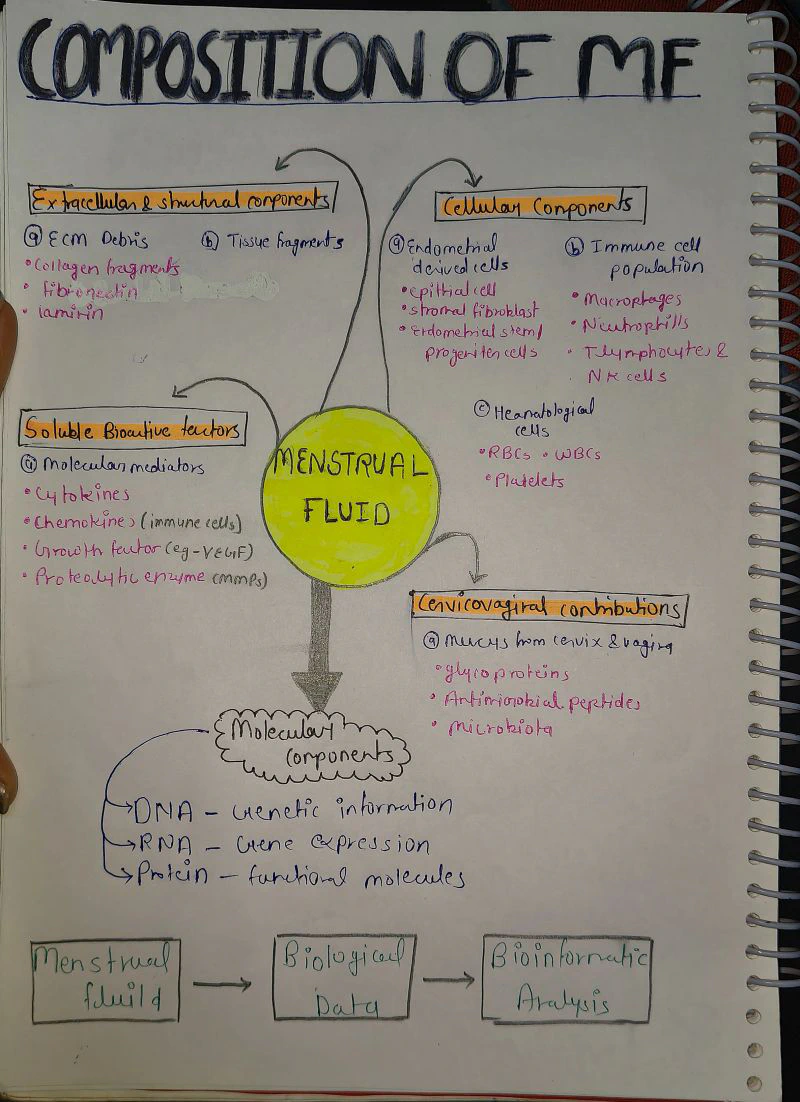 COMPOSITION OF MF
Extracellular & structural components
ⓐ ECM Debris
• Collagen fragments
• fibronectin
• laminin
ⓑ Tissue fragments
Cellular Components
ⓐ Endometrial
derived cells
• epithial cell
• stromal fibroblast
• Endometrial stem/
progeniter cells
ⓑ Immune cell
population
• Macrophages
• Neutrophills
• T lymphocytes &
NK cells
ⓒ Heamatological
cells
• RBCs • WBCs
• Platelets
Soluble Bioactive factors
ⓐ Molecular mediators
• Cytokines
• Chemokines (immune cells)
• Growth factor (eg-VEGF)
• Proteolytic enzyme (MMPs)
MENSTRUAL
FLUID
Cervicovaginal contributions
ⓐ Mucus from cervix & vagina
• glycoproteins
• Antimicrobial peptides
• Microbiota
Molecular
components
DNA – Genetic information
RNA – Gene expression
Protein – functional molecules
Menstrual
fluild
Biological
Data
Bioinformatic
Analysis